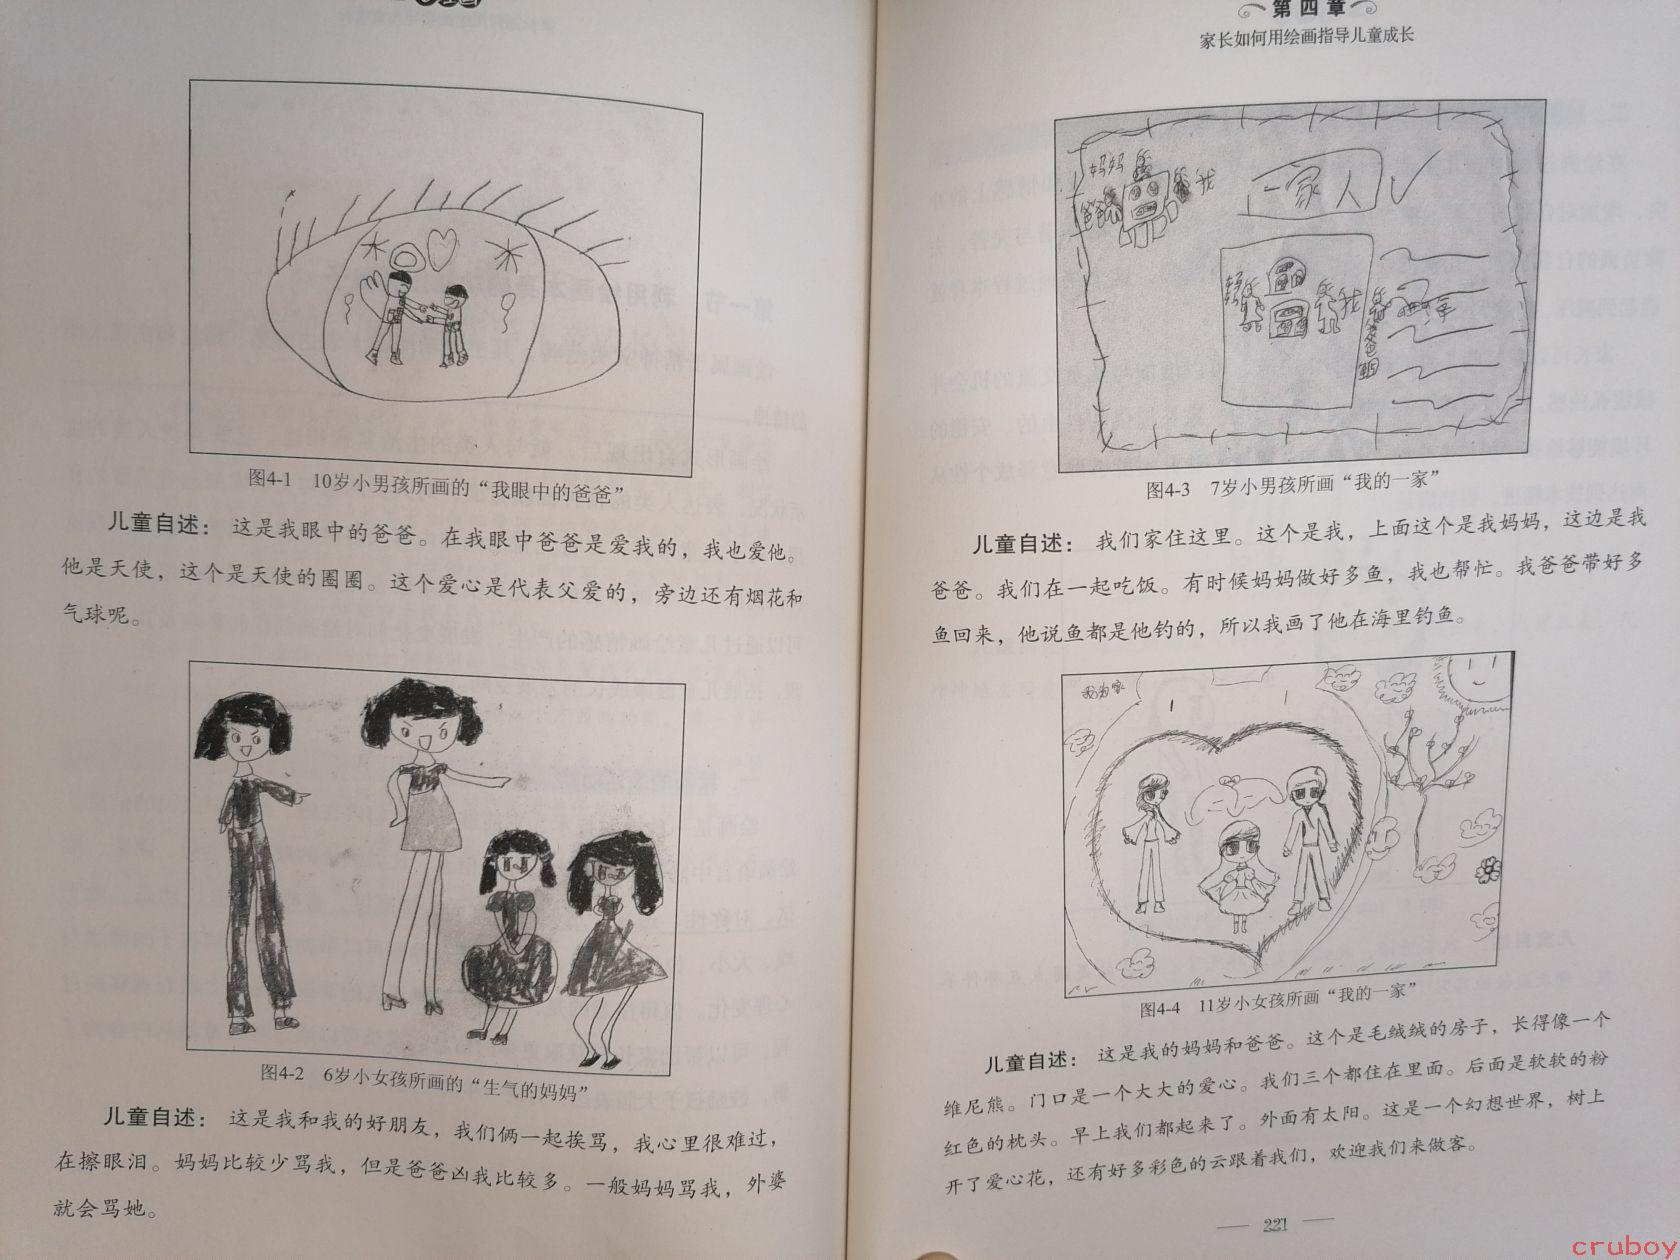 图4-1 10岁小男孩所画的“我眼中的爸爸”
儿童自述：这是我眼中的爸爸。在我眼中爸爸是爱我的，我也爱他。
他是天使，这个是天使的圈圈。这个爱心是代表父爱的，旁边还有烟花和
气球呢。
图4-2 6岁小女孩所画的“生气的妈妈”
儿童自述：这是我和我的好朋友，我们俩一起挨骂，我心里很难过，
在擦眼泪。妈妈比较少骂我，但是爸爸凶我比较多。一般妈妈骂我，外婆
就会骂她。
第四章
家长如何用绘画指导儿童成长
妈妈
爸爸
我
一家人
我
图4-3 7岁小男孩所画“我的一家”
儿童自述：我们家住这里。这个是我，上面这个是我妈妈，这边是我
爸爸。我们在一起吃饭。有时候妈妈做好多鱼，我也帮忙。我爸爸带好多
鱼回来，他说鱼都是他钓的，所以我画了他在海里钓鱼。
图4-4 11岁小女孩所画“我的一家”
儿童自述：这是我的妈妈和爸爸。这个是毛绒绒的房子，长得像一个
维尼熊。门口是一个大大的爱心。我们三个都住在里面。后面是软软的粉
红色的枕头。早上我们都起来了。外面有太阳。这是一个幻想世界，树上
开了爱心花，还有好多彩色的云跟着我们，欢迎我们来做客。
221
cruboy